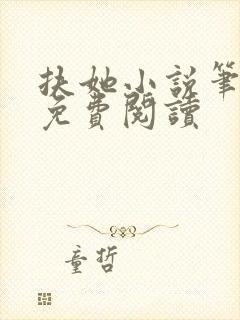 扶她小說筆
免費閱讀
童哲